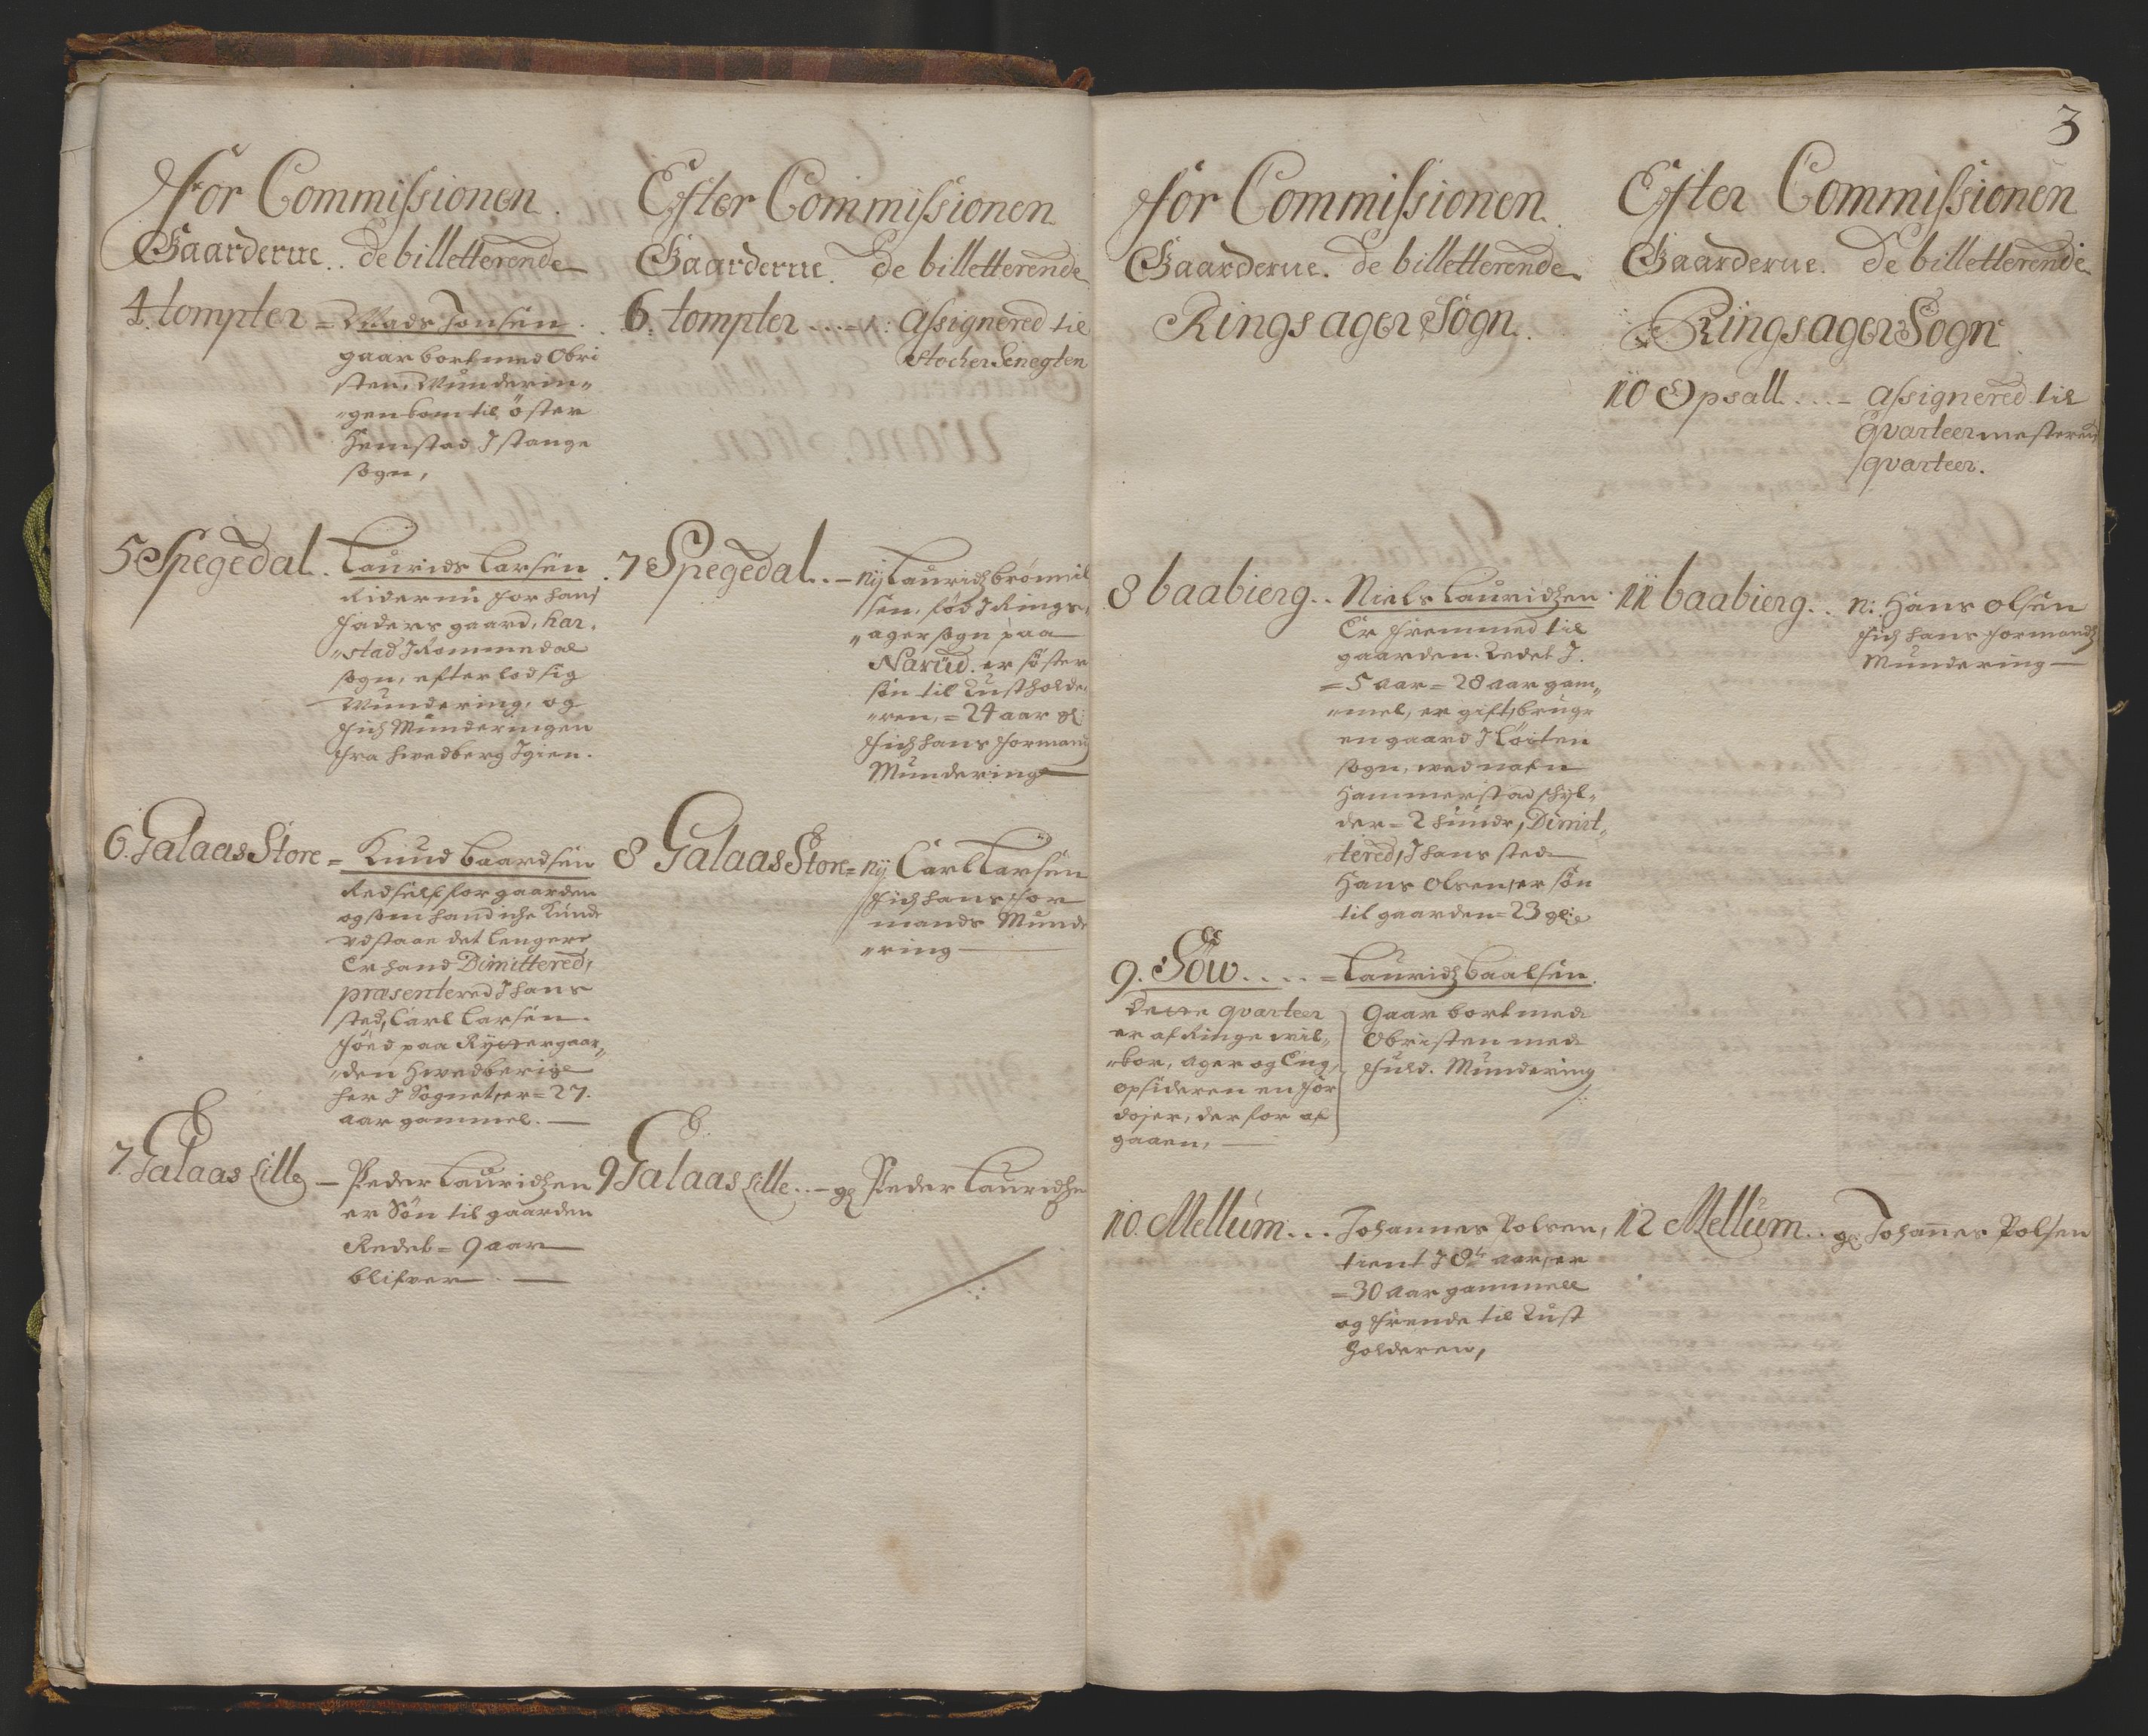 för Commissionen.
Gaarderne.. de billetterende
4. tompter = Mads Jonsen.
gaar bort med Obri
sten, Munderin-
-gen kom til öster
Hemstad I stange
sogn,
5 Spegedal. Laurids Larsen.
Rider nu for hans
faders gaard, har-
-stad I Rommedal
sogn, efterlod sig
Mundering, og
fich Munderingen
fra hvedberg Igien.
6. Galaas Store = Knud baardsen
Red self for gaarden
og som hand iche kunde
udstaae det lengere
Er hand Dimittered,
præsentered I hans
sted, Carl Larsen.
föed paa Rÿttergaar-
-den Hvedberig
her I Sognet, er = 27.
aar gammel. —
7. Galaas Lille — Peder Lauridzen
er Sön til gaarden
Redet = 9 aar
blifver. —
Efter Commissionen
Gaarderne. de billetterende
6. tompter ....= 1: Assignered til
Stocher knegten
7 Spegedal.. — nÿ Lauridz brönnil
sen, föd I Rings-
-ager sogn paa
Narüd. er söster
sön til Rustholde-
-ren, = 24 aar gl:
fich hans formands
Mundering —
8 Galaas Store = nÿ Carl Larsen
fich hans for
mands Munde
-ring —
9 Galaas Lille.. — gl Peder Lauridzen
3
för Commissionen.
Gaarderne. de billetterende
Ringsager Sogn.
8 baabierg.. Niels Lauridzen.
Er fremmed til
gaarden. Redet I.
= 5 aar = 28 aar gam-
-mel, er gift, bruger
en gaard I Löiten
sogn, ved nafn
Hammerstad schÿl-
der = 2 hunder, Dimit-
-tered, I hans sted
Hans Olsen, er sön
til gaarden = 23 gl:
9. Söw.... = Lauridz baalsen.
Dette qvarteer
er af Ringe vil-
-kor, ager og Eng,
opsideren en for
dojer, derfor af
gaaen, —
Gaar bort med
Obristen med
fuld. Mundering
10. Mellum... Johannes Polsen,
tient I 8 1/2 aar, er
= 30 aar gammell
og frende til Rust
holderen,
Efter Commissionen
Gaarderne. de billetterende
Ringsager Sogn
10 Opsall...— Assignered til
Qvarteermesterens
qvarteer.
11 baabierg.. n: Hans Olsen
fich hans formands
Mundering —
12 Mellum.. gl Johannes Polsen